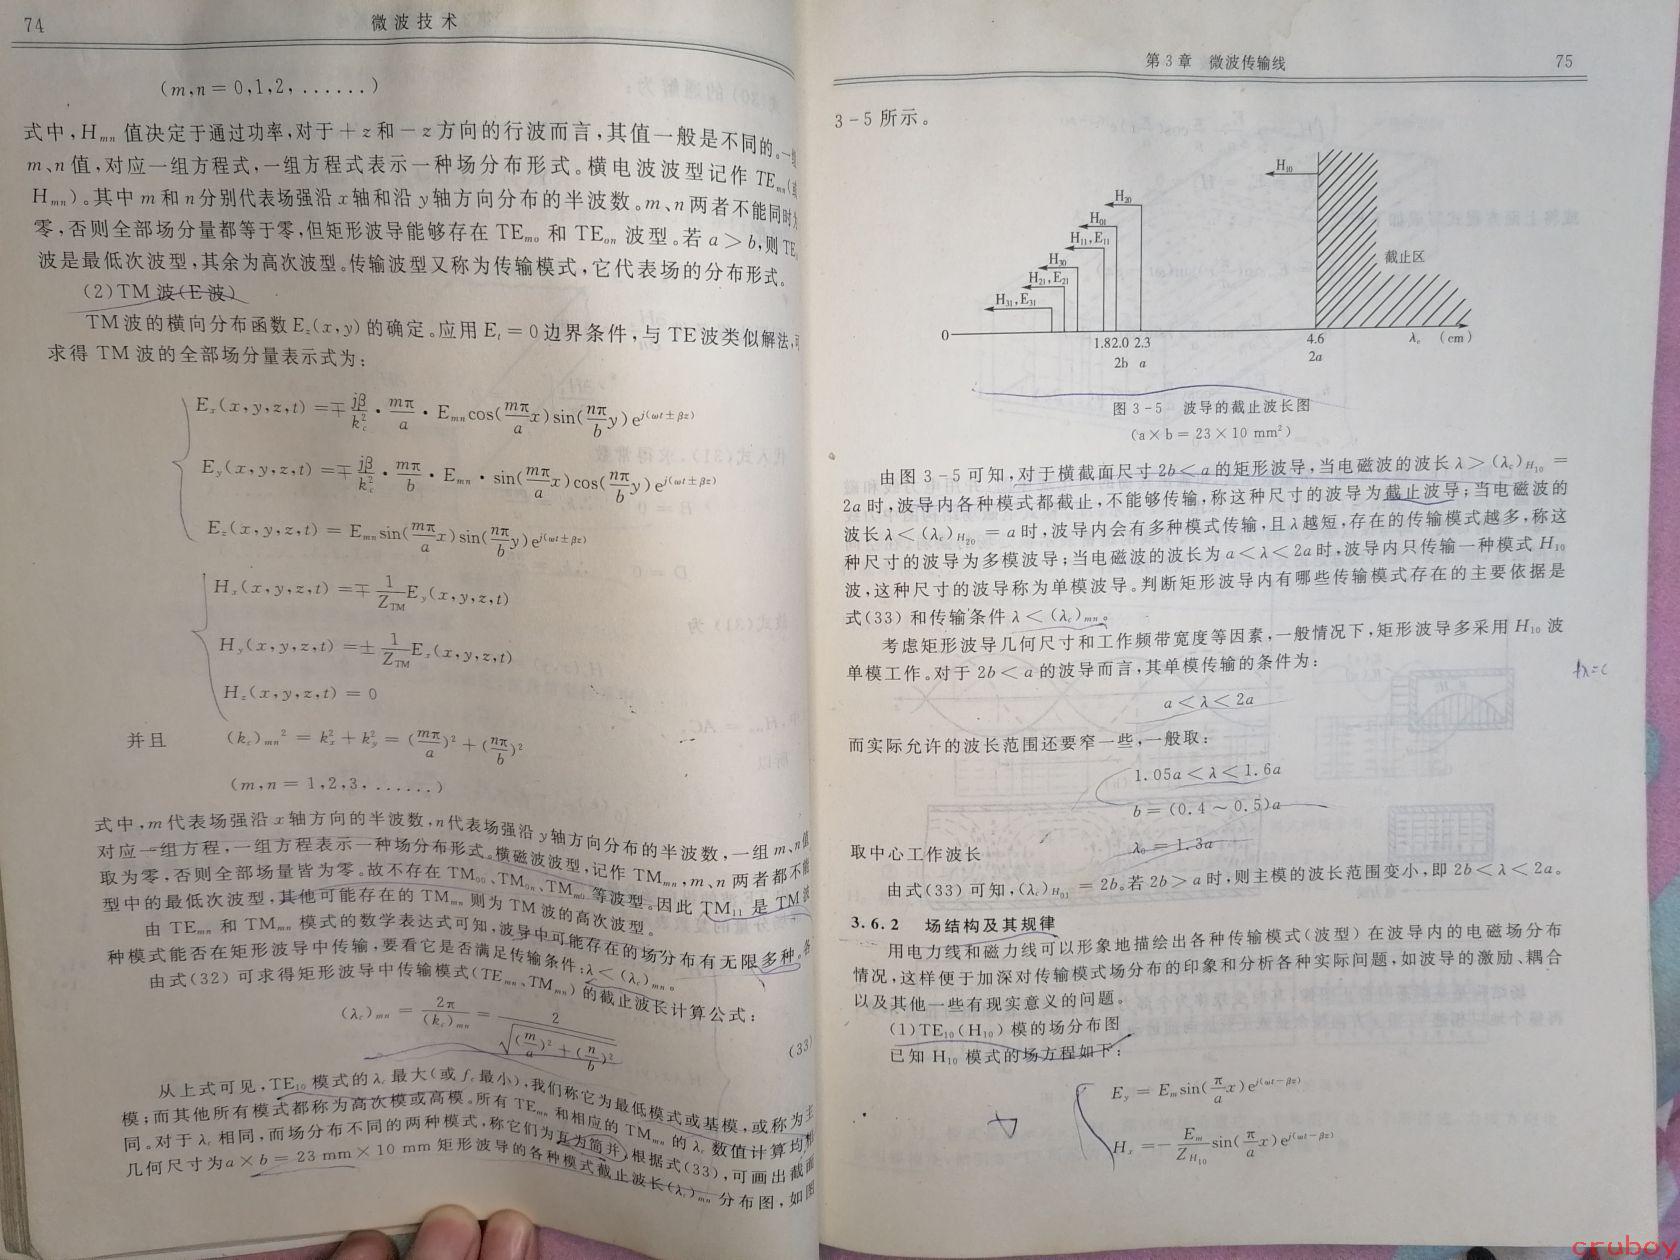 74
微波技术
(m,n = 0,1,2,......)
式中,Hmn 值决定于通过功率,对于+z和-z方向的行波而言,其值一般是不同的。一组
m、n值,对应一组方程式,一组方程式表示一种场分布形式。横电波波型记作 TEmn(或
Hmn)。其中 m 和 n 分别代表场强沿 x 轴和沿 y 轴方向分布的半波数。m、n两者不能同时为
零,否则全部场分量都等于零,但矩形波导能够存在 TEmo 和 TEon 波型。若 a>b,则 TE
波是最低次波型,其余为高次波型。传输波型又称为传输模式,它代表场的分布形式。
(2)TM波(E波)
TM波的横向分布函数Ez(x,y)的确定。应用 Et = 0边界条件,与TE波类似解法,可
求得 TM 波的全部场分量表示式为:
Ex(x,y,z,t) =∓ jβ/kc² · mπ/a · Emn cos(mπ/a x)sin(nπ/b y)e^j(ωt±βz)
Ey(x,y,z,t) =∓ jβ/kc² · mπ/b · Emn · sin(mπ/a x)cos(nπ/b y)e^j(ωt±βz)
Ez(x,y,z,t) = Emn sin(mπ/a x)sin(nπ/b y)e^j(ωt±βz)
Hx(x,y,z,t) =∓ 1/ZTM Ey(x,y,z,t)
Hy(x,y,z,t) =± 1/ZTM Ex(x,y,z,t)
Hz(x,y,z,t) = 0
并且 (kc)mn² = kx² + ky² = (mπ/a)² + (nπ/b)²
(m,n = 1,2,3,......)
式中,m代表场强沿x轴方向的半波数,n代表场强沿y轴方向分布的半波数,一组m、n值
对应一组方程,一组方程表示一种场分布形式。横磁波波型,记作TMmn,m、n两者都不能
取为零,否则全部场量皆为零。故不存在TM00、TM0n、TMm0等波型。因此TM11是TM波
型中的最低次波型,其他可能存在的TMmn则为TM波的高次波型。
由 TEmn 和 TMmn 模式的数学表达式可知,波导中可能存在的场分布有无限多种。各
种模式能否在矩形波导中传输,要看它是否满足传输条件:λ<(λc)mn。
由式(32)可求得矩形波导中传输模式(TEmn、TMmn)的截止波长计算公式:
(λc)mn = 2π/(kc)mn = 2/√((m/a)²+(n/b)²)
(33)
从上式可见,TE10模式的λc最大(或fc最小),我们称它为最低模式或基模,或称为主
模;而其他所有模式都称为高次模或高模。所有TEmn和相应的TMmn的λc数值计算均相
同。对于λc相同,而场分布不同的两种模式,称它们为互为简并,根据式(33),可画出截面
几何尺寸为a×b=23 mm×10 mm矩形波导的各种模式截止波长(λc)mn分布图,如图
第3章 微波传输线
75
3-5所示。
H10
H20
H01
H11,E11
H30
H21,E21
H31,E31
截止区
0
1.8 2.0 2.3
4.6
λc (cm)
2b a
2a
图3-5 波导的截止波长图
(a×b=23×10 mm²)
由图3-5可知,对于横截面尺寸2b<a的矩形波导,当电磁波的波长λ>(λc)H10 =
2a时,波导内各种模式都截止,不能够传输,称这种尺寸的波导为截止波导;当电磁波的
波长λ<(λc)H20 = a时,波导内会有多种模式传输,且λ越短,存在的传输模式越多,称这
种尺寸的波导为多模波导;当电磁波的波长为a<λ<2a时,波导内只传输一种模式H10
波,这种尺寸的波导称为单模波导。判断矩形波导内有哪些传输模式存在的主要依据是
式(33)和传输条件λ<(λc)mn。
考虑矩形波导几何尺寸和工作频带宽度等因素,一般情况下,矩形波导多采用H10波
单模工作。对于2b<a的波导而言,其单模传输的条件为:
fλ=c
a<λ<2a
而实际允许的波长范围还要窄一些,一般取:
1.05a<λ<1.6a
b=(0.4~0.5)a
取中心工作波长 λ0=1.3a
由式(33)可知,(λc)H01 = 2b。若2b>a时,则主模的波长范围变小,即2b<λ<2a。
3.6.2 场结构及其规律
用电力线和磁力线可以形象地描绘出各种传输模式(波型)在波导内的电磁场分布
情况,这样便于加深对传输模式场分布的印象和分析各种实际问题,如波导的激励、耦合
以及其他一些有现实意义的问题。
(1)TE10(H10)模的场分布图
已知H10模式的场方程如下:
Ey = Em sin(π/a x)e^j(ωt-βz)
Hx =- Em/ZH10 sin(π/a x)e^j(ωt-βz)
cruboy